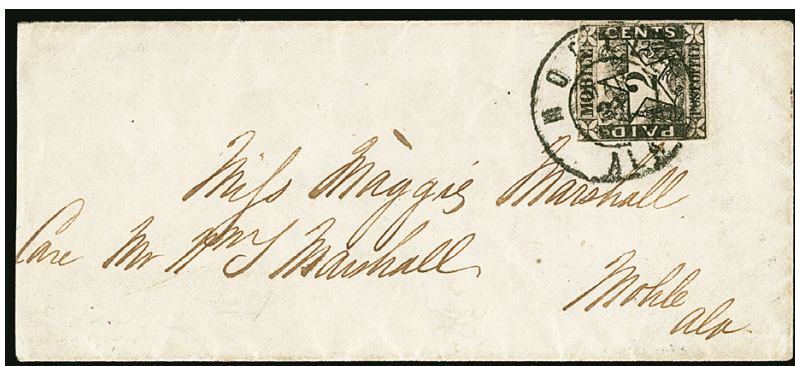 CENTS
MOBILE
2
POST OFFICE
PAID
MO
ALA
Miss Maggie Marshall
Care Mr Wm S Marshall
Mobile
Ala